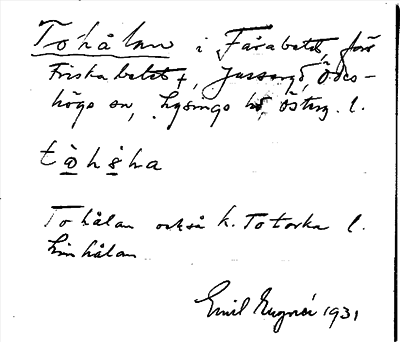 Tohålan i Fårabetet, förr
Friskabetet, Jussargd, Ödes-
högs sn, Lysings hd, Österg. l.
Tohålan också k. Totorka l.
Linhålan
Emil 1931